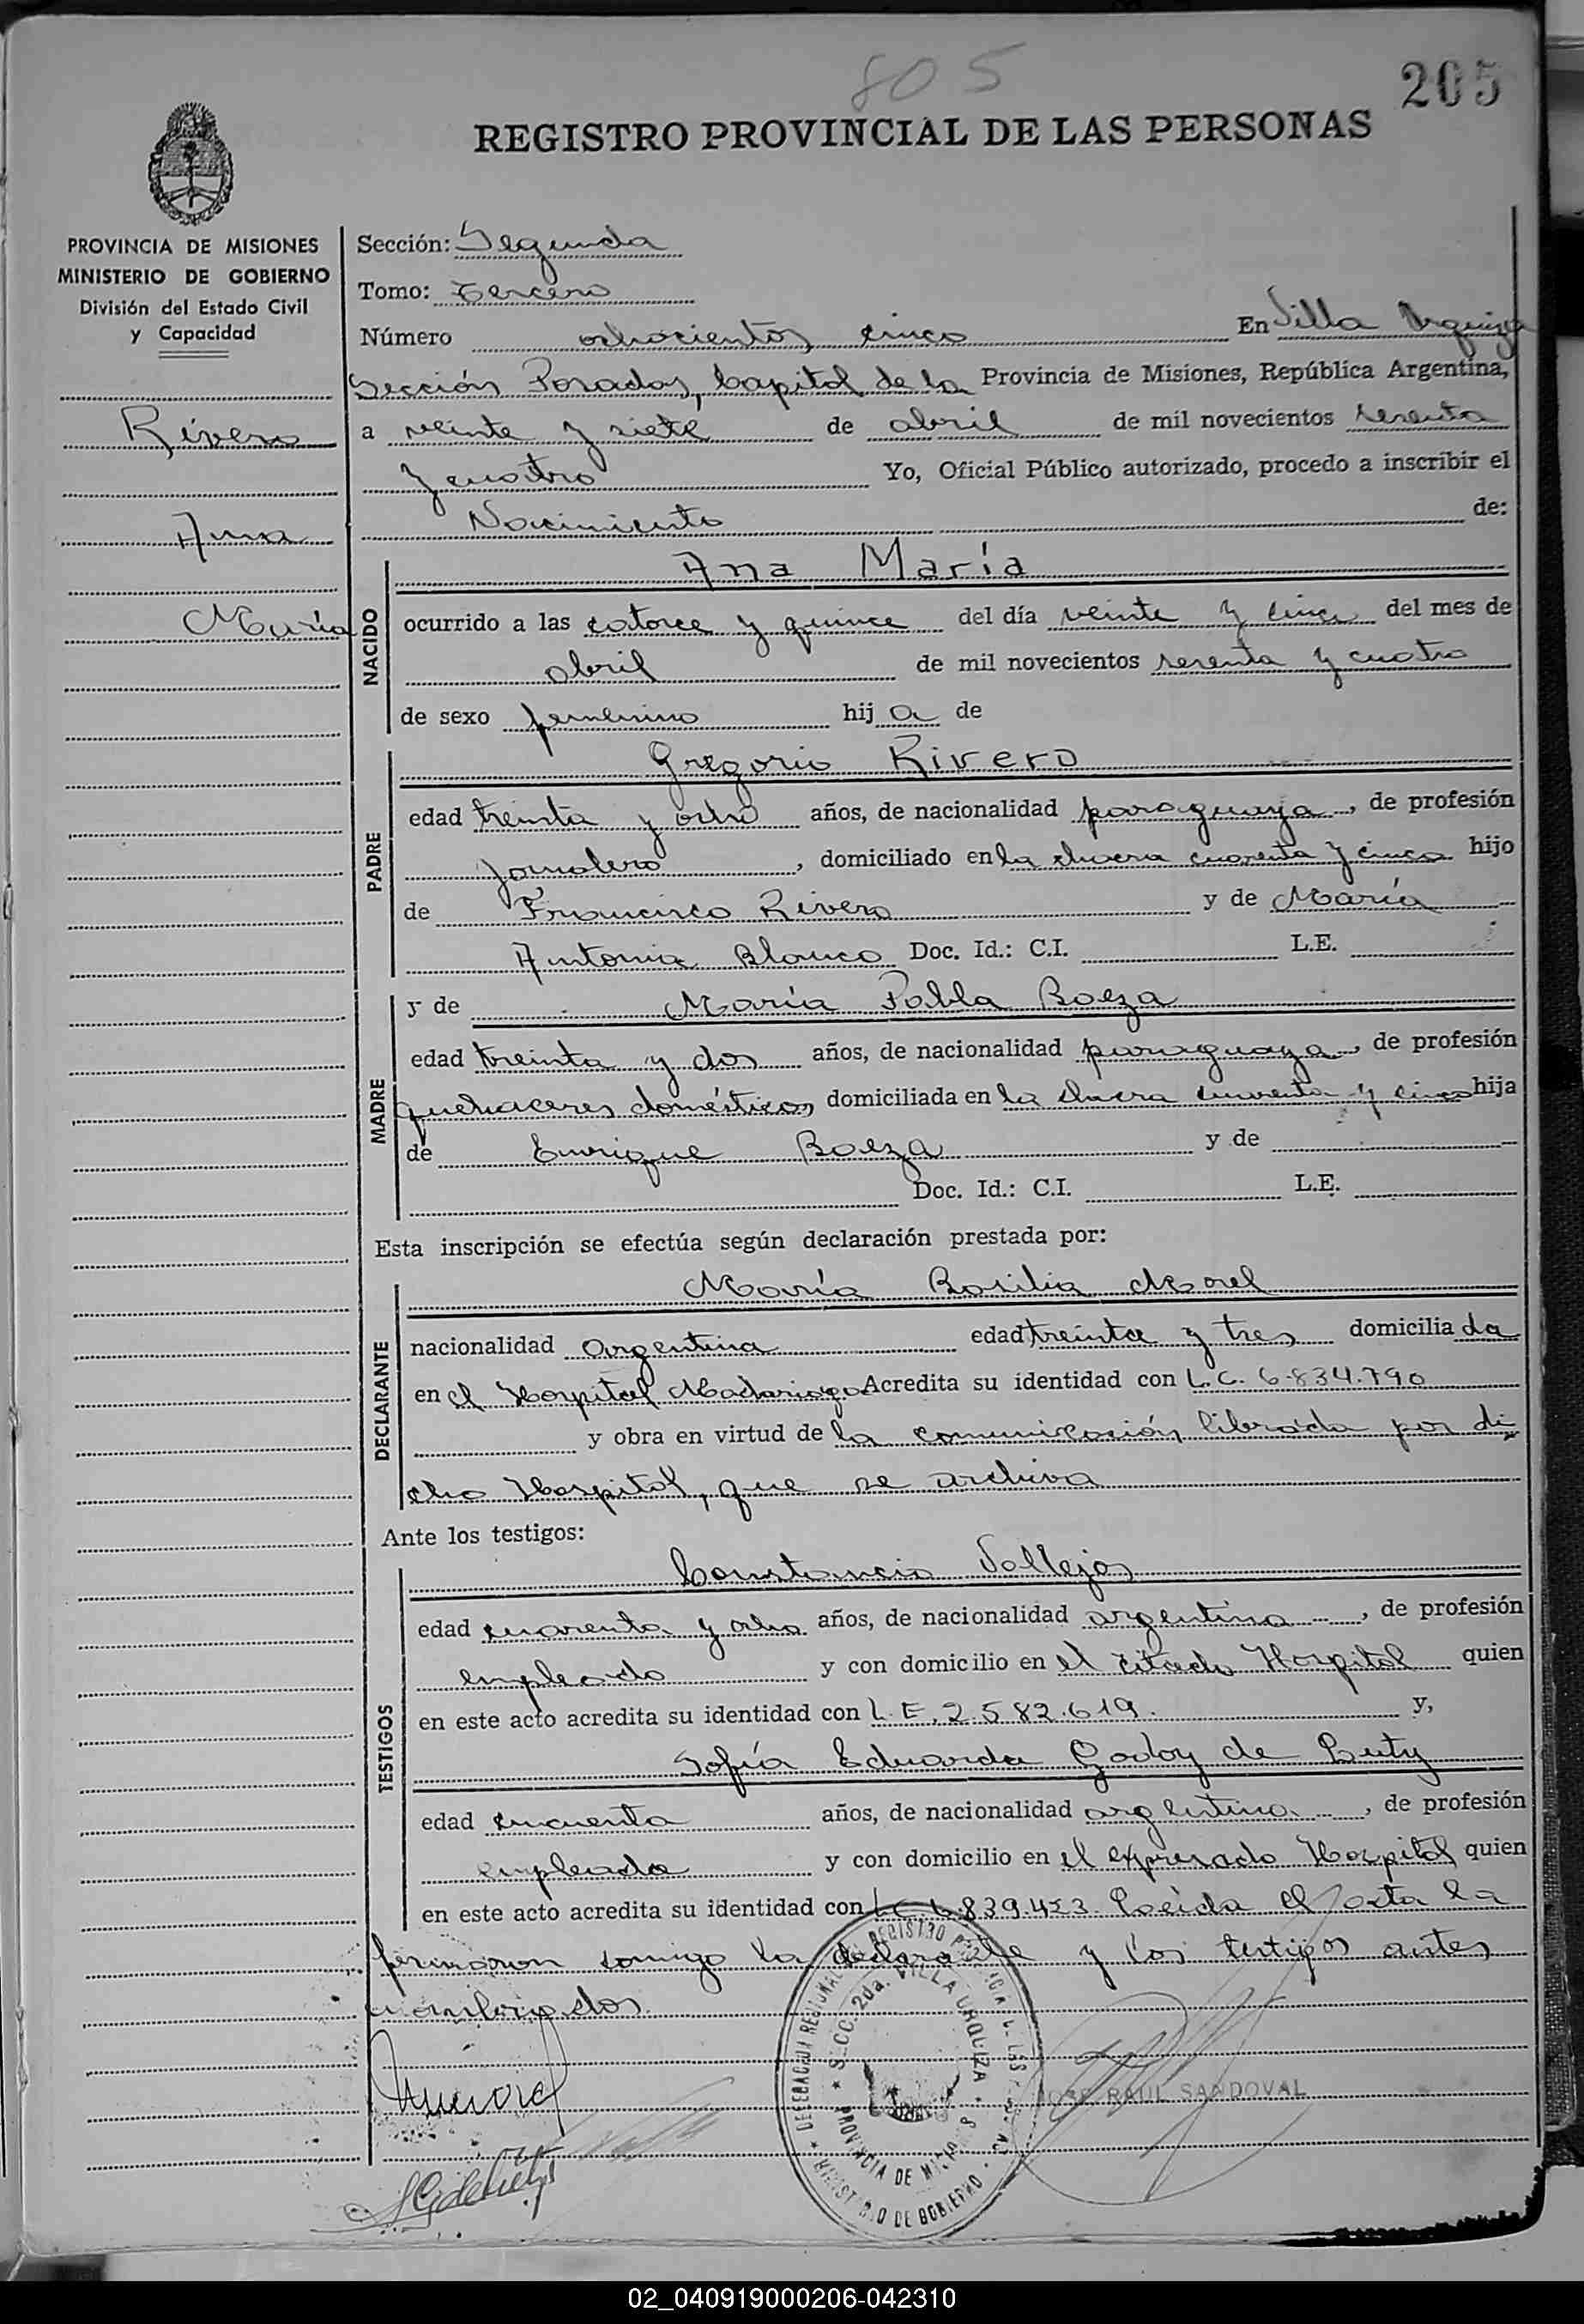 805
205
REGISTRO PROVINCIAL DE LAS PERSONAS
PROVINCIA DE MISIONES
MINISTERIO DE GOBIERNO
División del Estado Civil
y Capacidad
Rivero
Ana
María
Sección: Segunda
Tomo: Tercero
Número ochocientos cinco En Villa Urquiza
Sección Posadas, Capital de la Provincia de Misiones, República Argentina,
a veinte y siete de abril de mil novecientos sesenta
y cuatro Yo, Oficial Público autorizado, procedo a inscribir el
Nacimiento de:
NACIDO
Ana María
ocurrido a las catorce y quince del día veinte y cinco del mes de
abril de mil novecientos sesenta y cuatro
de sexo femenino hij a de
PADRE
Gregorio Rivero
edad treinta y ocho años, de nacionalidad paraguaya, de profesión
jornalero, domiciliado en la chacra cuarenta y cinco hijo
de Francisco Rivero y de María
Antonia Blanco Doc. Id.: C.I. L.E.
MADRE
y de María Pabla Baeza
edad treinta y dos años, de nacionalidad paraguaya, de profesión
quehaceres domésticos, domiciliada en la chacra cuarenta y cinco hija
de Enrique Baeza y de
Doc. Id.: C.I. L.E.
Esta inscripción se efectúa según declaración prestada por:
DECLARANTE
María Basilia Morel
nacionalidad argentina edad treinta y tres domicilia da
en el Hospital Madariaga Acredita su identidad con L.C. 6.834.790
y obra en virtud de la comunicación librada por di
cho Hospital, que se archiva
Ante los testigos:
TESTIGOS
Constancio Vallejos
edad cuarenta y ocho años, de nacionalidad argentina, de profesión
empleado y con domicilio en el citado Hospital quien
en este acto acredita su identidad con L.E. 2.582.619. y,
Sofía Eduarda Godoy de
edad cincuenta años, de nacionalidad argentina, de profesión
empleada y con domicilio en el expresado Hospital quien
en este acto acredita su identidad con L.C. 6.839.453. Leída el acta la
firmaron conmigo la declarante y los testigos antes
nombrados.
SECC. 2da. VILLA URQUIZA
PROVINCIA DE MISIONES
DELEGACION REGIONAL DEL REGISTRO PROVINCIAL DE LAS PERSONAS
MINISTERIO DE GOBIERNO
JOSE RAUL SANDOVAL
02_040919000206-042310